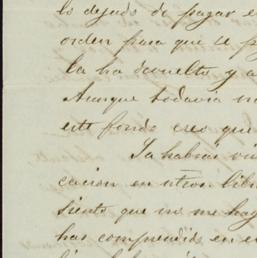 lo dejado de pagar e
orden para que se p
la ha devuelto y a
Aunque todavia no
este fondo creo que
Ya habrás vi
cacion en
siento que no me hay
has comprendido en e